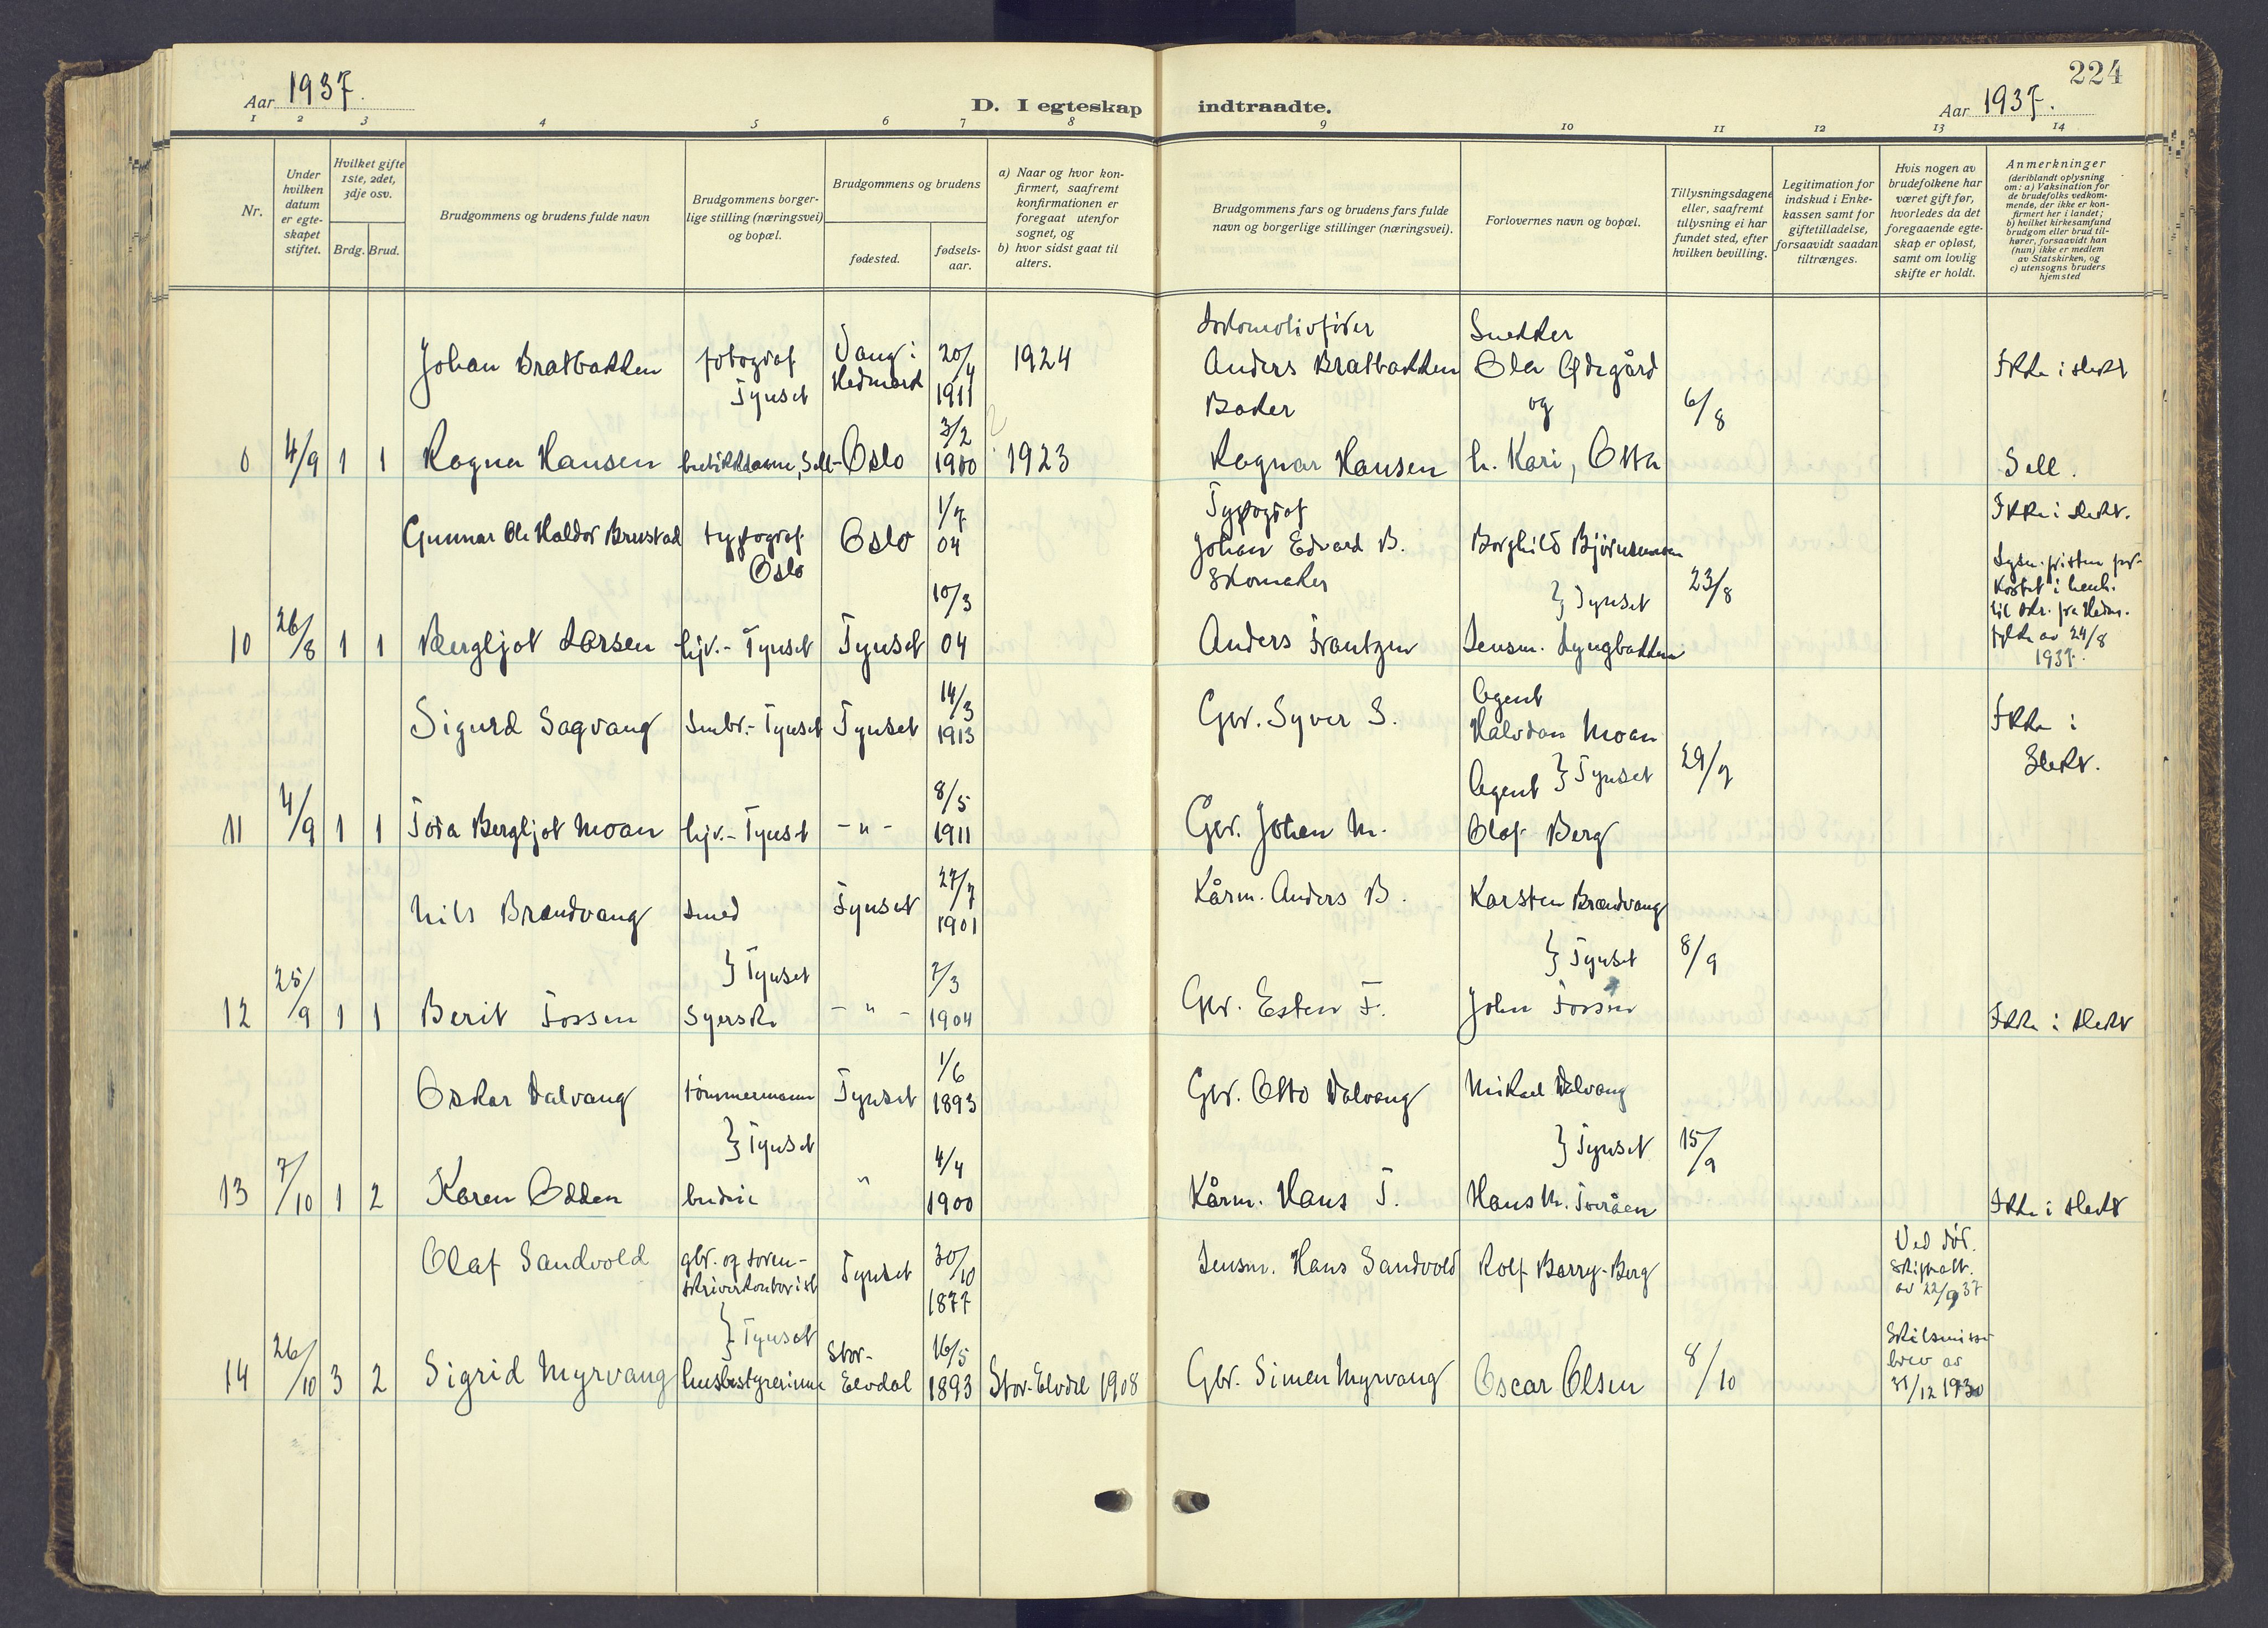 224
Aar 1937.
D. I egteskap indtraadte.
Aar 1937.
1 2 3 4 5 6 7 8 9 10 11 12 13 14
Nr.
Under hvilken datum er egte-skapet stiftet.
Hvilket gifte 1ste, 2det, 3dje osv.
Brdg. Brud.
Brudgommens og brudens fulde navn
Brudgommens borger-lige stilling (næringsvei) og bopæl.
Brudgommens og brudens
fødested.
fødsels-aar.
a) Naar og hvor kon-firmert, saafremt konfirmationen er foregaat utenfor sognet, og
b) hvor sidst gaat til alters.
Brudgommens fars og brudens fars fulde navn og borgerlige stillinger (næringsvei).
Forlovernes navn og bopæl.
Tillysningsdagene eller, saafremt tillysning ei har fundet sted, efter hvilken bevilling.
Legitimation for indskud i Enke-kassen samt for giftetilladelse, forsaavidt saadan tiltrænges.
Hvis nogen av brudefolkene har været gift før, hvorledes da det foregaaende egte-skap er opløst, samt om lovlig skifte er holdt.
Anmerkninger
(deriblandt oplysning om: a) Vaksination for de brudefolks vedkom-mende, der ikke er kon-firmert her i landet;
b) hvilket kirkesamfund brudgom eller brud til-hører, forsaavidt han (hun) ikke er medlem av Statskirken, og
c) utensogns bruders hjemsted
Johan Bratbakken fotograf Tynset Vang i Hedmark 20/4 1911 1924 Lokomotivfører Anders Bratbakken Snekker Ola Ødegård og 6/8 Ikke i slekt
4/9 1 1 Ragna Hansen butikkdame, Sell- Oslo 3/2 1900 1923 Bader Ragnar Hansen h. Kari, Otta Sell.
Gunnar Ole Haldor Brustad typograf Oslo Oslo 1/7 04 Typograf Johan Edvard B. Borghild Bjørnsmoen 23/8 Ikke i slekt.
10 26/8 1 1 Bergljot Larsen hjv.- Tynset Tynset 10/3 04 Skomaker Anders Frantzen } Tynset Lensm. Lyngbakken
Lysn.fristen for-kortet i henh. til skr. fra Hedm. fylke av 24/8 1937.
Sigurd Sagvang Smbr.- Tynset Tynset 14/3 1913 Gbr. Syver S. Agent Halvdan Moan } Tynset 29/7 Ikke i Slekt.
11 4/9 1 1 Tora Bergljot Moan hjv.- Tynset - " - 8/5 1911 Gbr. Johan M. Agent Olaf Berg
Nils Brandvang smed Tynset 27/7 1901 Kårm. Anders B. Karsten Brandvang
} Tynset } Tynset 8/9
12 25/9 1 1 Berit Fossen Syerske - " - 7/3 1904 Gbr. Esten F. John Fossen Ikke i slekt
Oskar Dalvang tømmermann Tynset 1/6 1893 Gbr. Otto Dalvang Mikael Dalvang
} Tynset } Tynset 15/9
13 7/10 1 2 Karen Odden budeie " 4/4 1900 Kårm. Hans T. Hans M. Toråen Ikke i slekt
Olaf Sandvold gbr. og soren-skriverkontorist Tynset 30/10 1877 Lensm. Hans Sandvold Rolf Barry-Berg
Ved død. Skifteatt. av 22/9 37
} Tynset
14 26/10 3 2 Sigrid Myrvang husbestyrerinne Stor-Elvdal 16/5 1893 Stor-Elvdal 1908 Gbr. Simen Myrvang Oscar Olsen 8/10
Skilsmisse brev av 31/12 1930